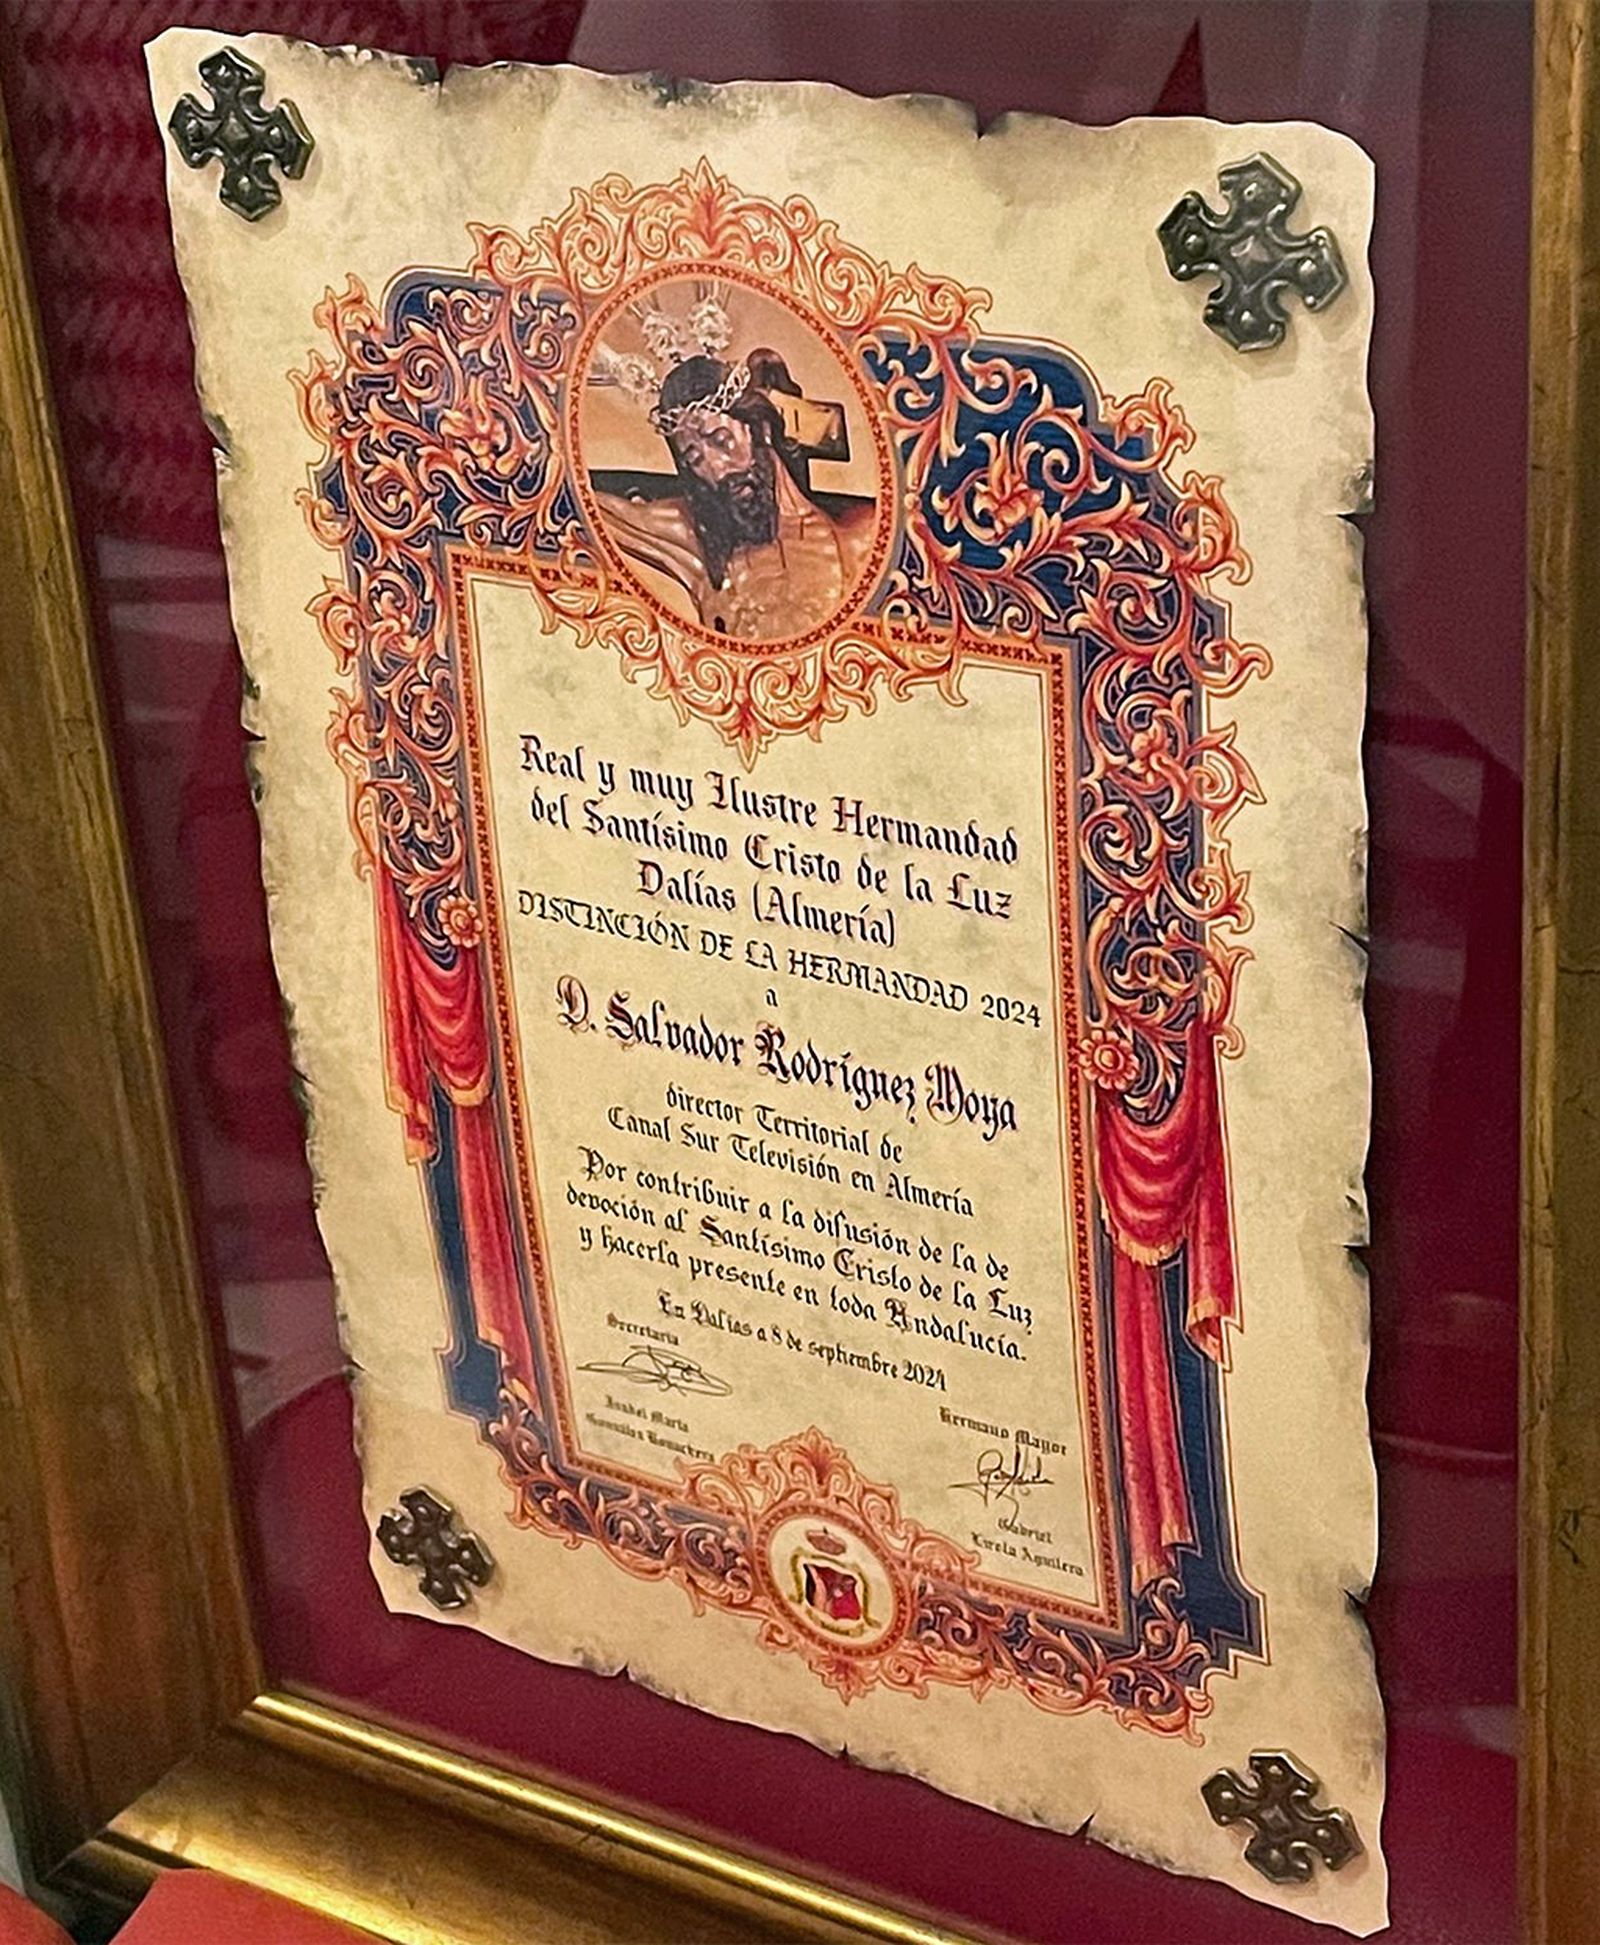 Real y muy Ilustre Hermandad
del Santísimo Cristo de la Luz
Dalías (Almería)
DISTINCIÓN DE LA HERMANDAD 2024
a
D. Salvador Rodríguez Moya
director Territorial de
Canal Sur Televisión en Almería
Por contribuir a la difusión de la de
devoción al Santísimo Cristo de la Luz
y hacerla presente en toda Andalucía.
En Dalías a 8 de septiembre 2024
Secretaria
Isabel María
Hermano Mayor
Gabriel
Lirola Aguilera